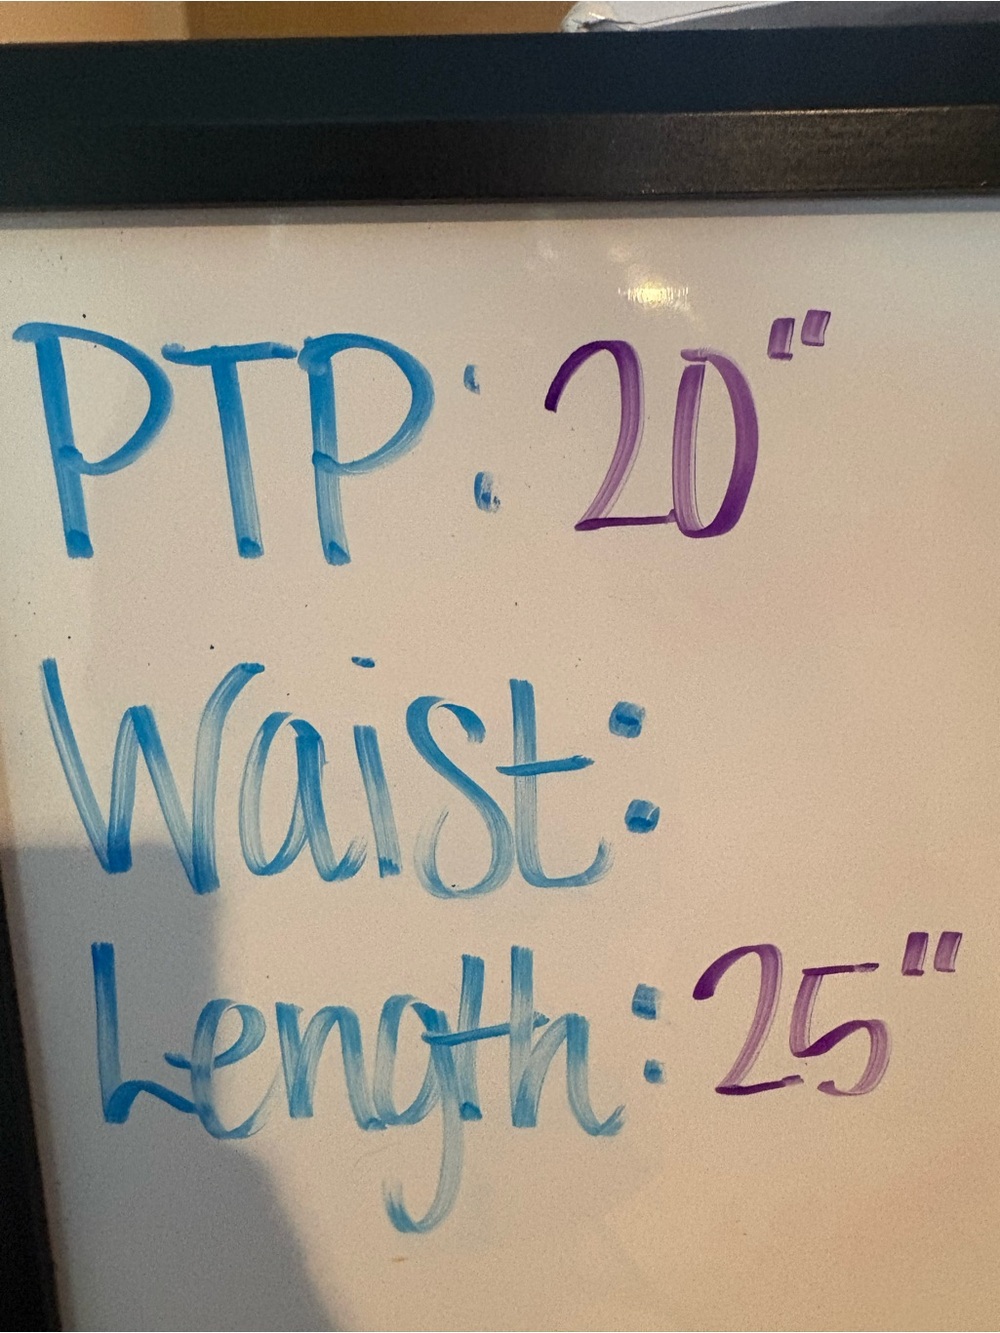 PTP: 20"
Waist:
Length: 25"